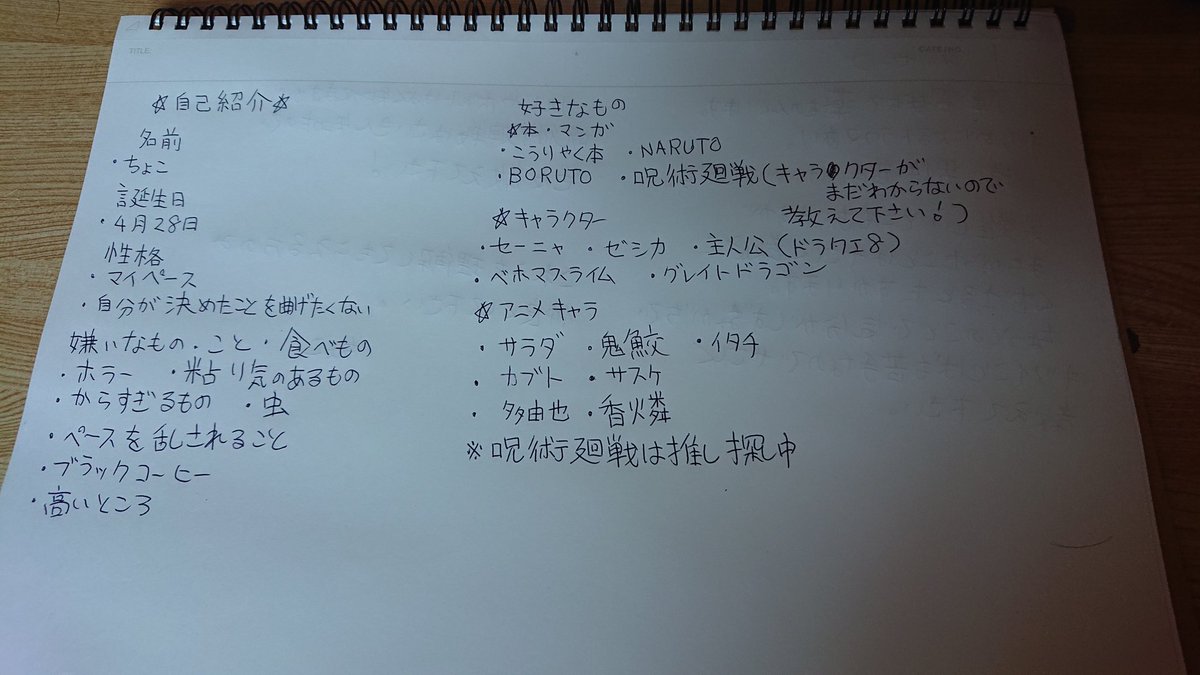 TITLE
DATE/NO.
☆自己紹介☆
名前
・ちょこ
誕生日
・4月28日
性格
・マイペース
・自分が決めたことを曲げたくない
嫌いなもの・こと・食べもの
・ホラー ・粘り気のあるもの
・からすぎるもの ・虫
・ペースを乱されること
・ブラックコーヒー
・高いところ
好きなもの
☆本・マンガ
・こうりやく本 ・NARUTO
・BORUTO ・呪術廻戦(キャラクターが
まだわからないので
教えて下さい!)
☆キャラクター
・セーニャ ・ゼシカ ・主人公(ドラクエ8)
・ベホマスライム ・グレイトドラゴン
☆アニメキャラ
・サラダ ・鬼鮫 ・イタチ
・カブト ・サスケ
・多由也 ・香燐
※呪術廻戦は推し探し中